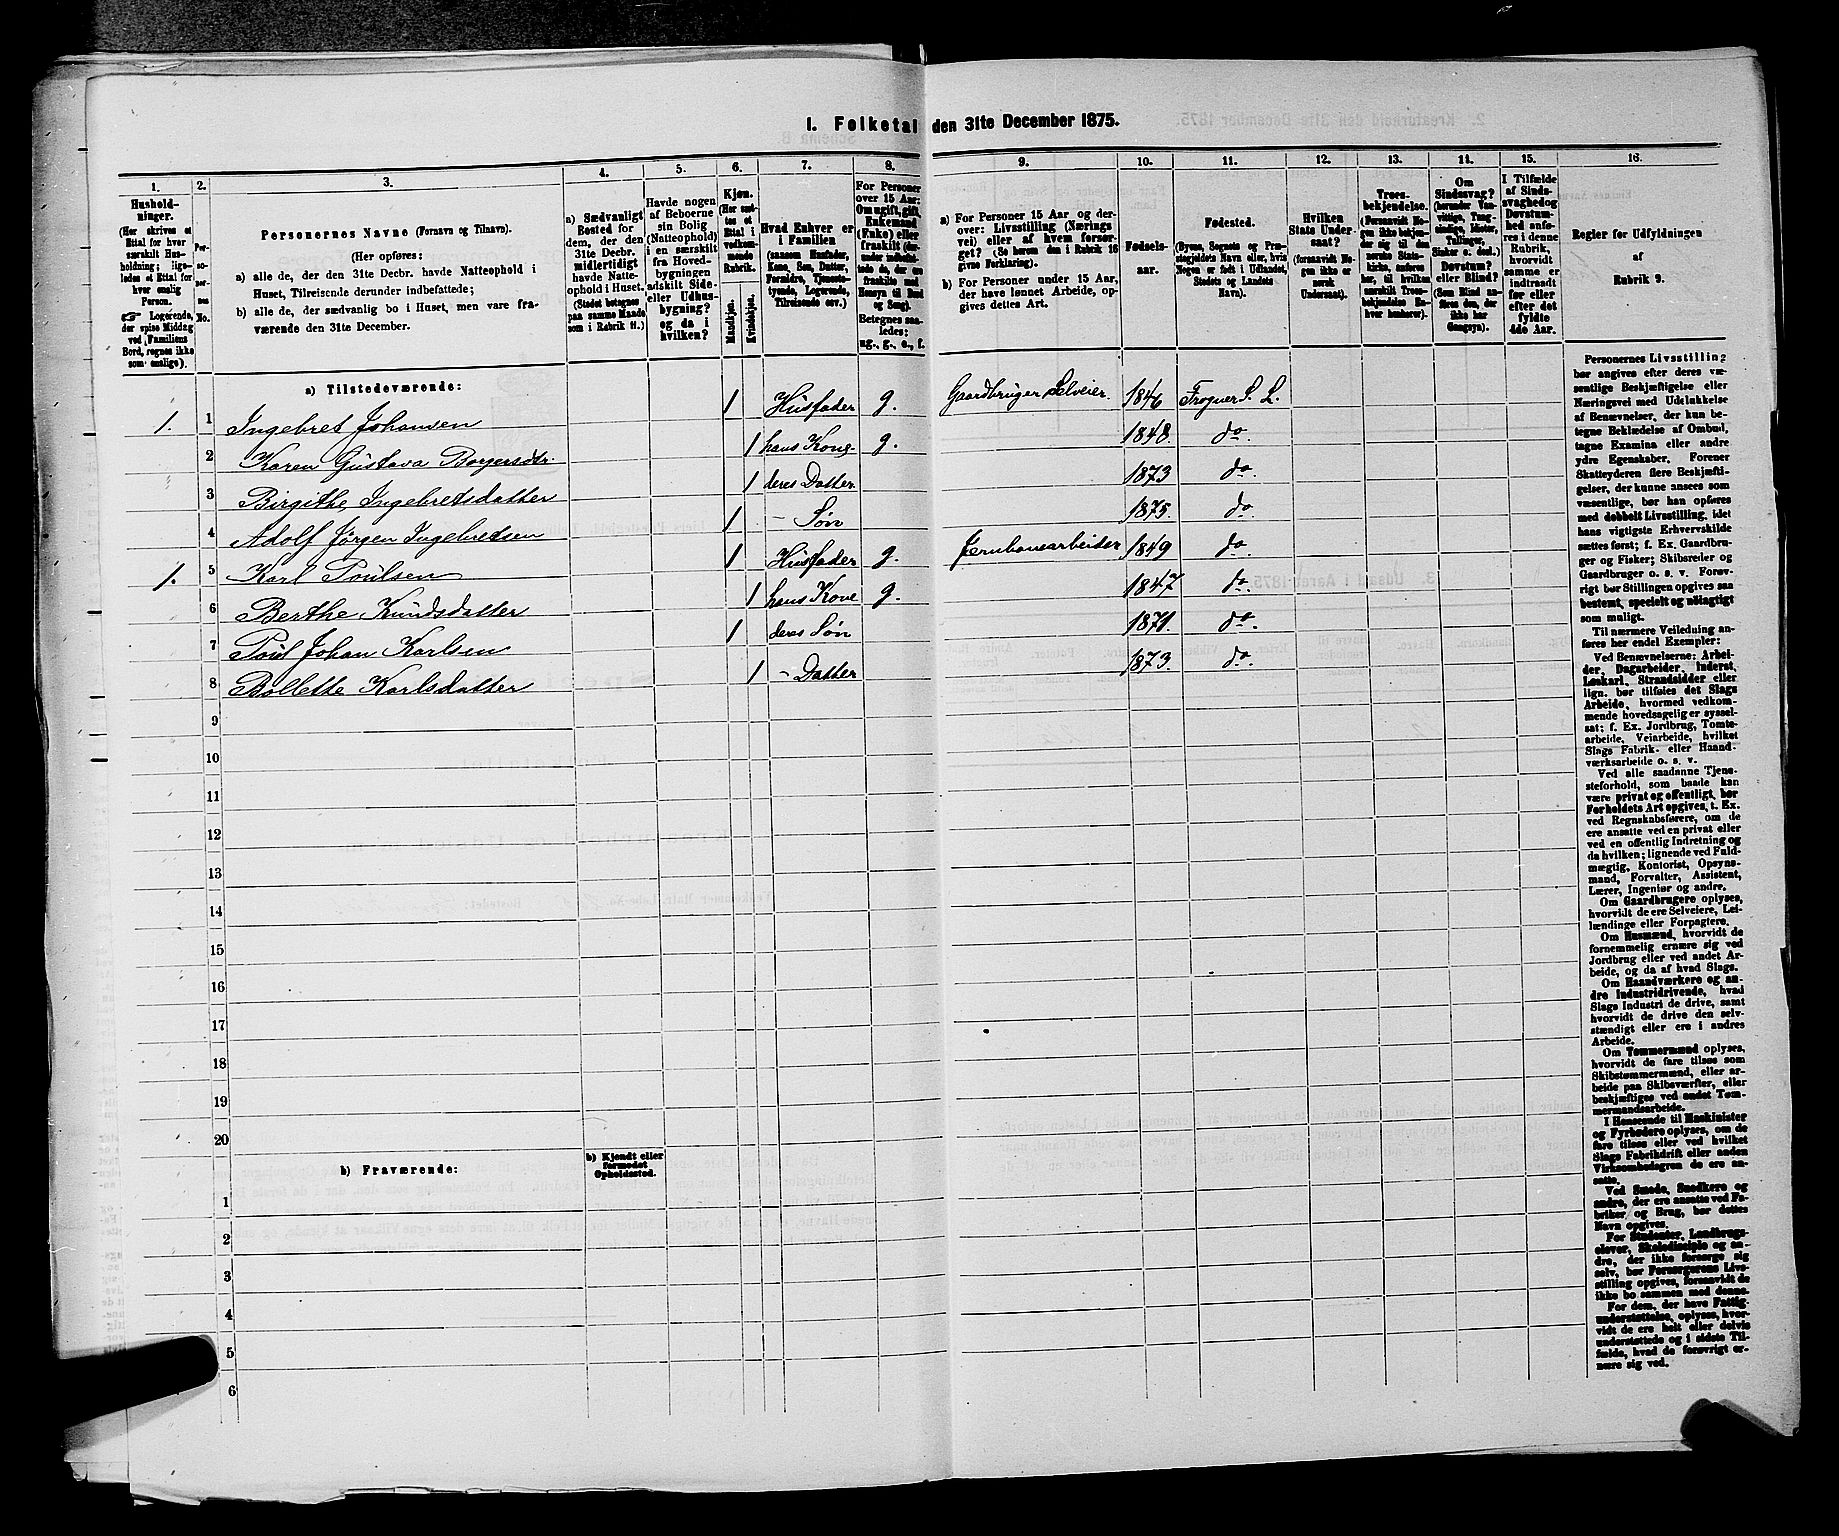 I. Folketal den 31te December 1875.
1. 2. 3. 4. 5. 6. 7. 8. 9. 10. 11. 12. 13. 14. 15. 16.
Hushold-
ninger.
(Her skrives et
Ettal for hver
særskilt Hus-
holdning; lige-
ledes et Ettal for
hver enslig
Person.
☞ Logerende,
der spise Middag
ved Familiens
Bord, regnes ikke
som enslige).
Per-
so-
per-
nes
No.
Personernes Navne (Fornavn og Tilnavn).
(Her opføres:
a) alle de, der den 31te Decbr. havde Natteophold i
Huset, Tilreisende derunder indbefattede;
b) alle de, der sædvanlig bo i Huset, men vare fra-
værende den 31te December.
a) Sædvanligt
Bosted for
dem, der den
31te Decbr.
midlertidigt
havde Natte-
ophold i Huset.
(Stedet betegnes
paa samme Maade
som i Rubrik 11.)
Havde nogen
af Beboerne
sin Bolig
(Natteophold)
i en særskilt
fra Hoved-
bygningen
adskilt Side-
eller Udhus-
bygning?
og da i
hvilken?
Kjøn.
(Her sæt-
tes et
Ettal i
vedkom-
mende
Rubrik.
Mandkjøn.
Kvindekjøn.
Hvad Enhver er
i Familien
(saasom Husfader,
Kone, Søn, Datter,
Forældre, Tjeneste-
tyende, Logerende,
Tilreisende osv.)
For Personer
over 15 Aar:
Om ugift, gift,
Enkemand
(Enke) eller
fraskilt
Hensyn til Bord
og Seng).
Betegnes saa-
ledes:
ug., g., e., f.
a) For Personer 15 Aar og der-
over: Livsstilling (Nærings
vei) eller af hvem forsør-
get? (Se herom den i Rubrik 16
givne Forklaring).
b) For Personer under 15 Aar,
der have lønnet Arbeide, op-
gives dettes Art.
Fødsels-
aar.
Fødested.
(Byens, Sognets og Præ-
stegjeldets Navn eller, hvis
Nogen er født i Udlandet,
Stedets og Landets
Navn).
Hvilken
Stats Under-
saat?
(forsaavidt No-
gen ikke er
norsk
Undersaat).
Troes-
bekjendelse.
(Forsaavidt No-
gen ikke bekjen-
der sig til den
norske Stats-
kirke, anføres
her, til hvilken
særskilt Troes-
bekjendelse En-
hver henhører).
Om
Sindssvag?
(herunder Van-
vittige, Tung-
sindige, Idioter,
Tullinger,
Sinker o. desl.).
Døvstum?
eller Blind?
(Som Blind an-
føres den, der
ikke har
Gangsyn).
I Tilfælde
af Sinds-
svaghed og
Døvstum-
hed anfø-
res i denne
Rubrik,
hvorvidt
samme er
indtraadt
før eller
efter det
fyldte
4de Aar.
Regler for Udfyldningen
af
Rubrik 9.
a) Tilstedeværende:
1. 1 Ingebret Johansen 1 Husfader g. Gaardbruger Selveier. 1846 Frogner S. L.
2 Karen Gustava Borgersdtr. 1 hans Kone g. 1848. do.
3 Birgithe Ingebretsdatter 1 deres Datter 1873 do.
4 Adolf Jörgen Ingebretsen 1 - Søn 1875. do
1. 5 Karl Poulsen 1 Husfader g. Jernbanearbeider 1849 do.
6 Berthe Knudsdatter 1 hans Kone g. 1847 do.
7 Poul Johan Karlsen 1 deres Søn 1871. do.
8 Bollette Karlsdatter 1 - Datter 1873. do.
9
10
11
12
13
14
15
16
17
18
19
20
b) Fraværende: b) Kjendt eller
formodet
Opholdssted.
1
2
3
4
5
6
Personernes Livsstilling
bør angives efter deres væ-
sentlige Beskjæftigelse eller
Næringsvei med Udelukkelse
af Benævnelser, der kun be-
tegne Beklædelse af Ombud,
tagne Examina eller andre
ydre Egenskaber. Forener
Skatteyderen flere Beskjæfti-
gelser, der kunne ansees som
væsentlige, bør han opføres
med dobbelt Livsstilling, idet
hans vigtigste Erhvervskilde
sættes først; f. Ex. Gaardbru-
ger og Fisker; Skibsreder og
Gaardbruger o. s. v. Forøv-
rigt bør Stillingen opgives saa
bestemt, specielt og nøiagtigt
som muligt.
Til nærmere Veiledning an-
føres her endel Exempler:
Ved Benævnelserne: Arbei-
der, Dagarbeider, Inderst,
Løskarl, Strandsidder eller
lign. bør tilføies det Slags
Arbeide, hvormed vedkom-
mende hovedsagelig er syssel-
sat; f. Ex. Jordbrug, Tomte-
arbeide, Veiarbeide, hvilket
Slags Fabrik- eller Haand-
værksarbeide o. s. v.
Ved alle saadanne Tjene-
steforhold, som baade kan
være privat og offentligt, bør
Forholdets Art opgives, t. Ex.
ved Regnskabsførere, om de
ere ansatte ved en privat eller
ved en offentlig Indretning og
da hvilken; lignende ved Fuld-
mægtig, Kontorist, Opsyns-
mand, Forvalter, Assistent,
Lærer, Ingeniør og andre.
Om Gaardbrugere oplyses,
hvorvidt de ere Selveiere, Lei-
lændinge eller Forpagtere.
Om Husmænd, hvorvidt de
fornemmelig ernære sig ved
Jordbrug eller ved andet Ar-
beide, og da af hvad Slags.
Om Haandværkere og an-
dre Industridrivende, hvad
Slags Industri de drive, samt
hvorvidt de drive den selv-
stændigt eller ere i andres
Arbeide.
Om Tømmermænd oplyses,
hvorvidt de fare tilsøs som
Skibstømmermænd, eller ar-
beide paa Skibsværfter, eller
beskjæftiges ved andet Tøm-
mermandsarbeide.
I Henseende til Maskinister
og Fyrbødere oplyses, om de
fare tilsøs eller ved hvilket
Slags Fabrikdrift eller anden
Virksomhedsgren de ere an-
satte.
Ved Smede, Snedkere og
andre, der ere ansatte ved Fa-
briker og Brug, bør dettes
Navn opgives.
For Studenter, Landbrugs-
elever, Skoledisciple og an-
dre, der ikke forsørge sig
selv, bør Forsørgerens Livs-
stilling opgives, forsaavidt de
ikke bo sammen med denne.
For dem, der have Fattig-
understøttelse, oplyses, hvor-
vidt de ere helt eller delvis
understøttede og i sidste Til-
fælde, hvad de forøvrigt er-
nære sig ved.